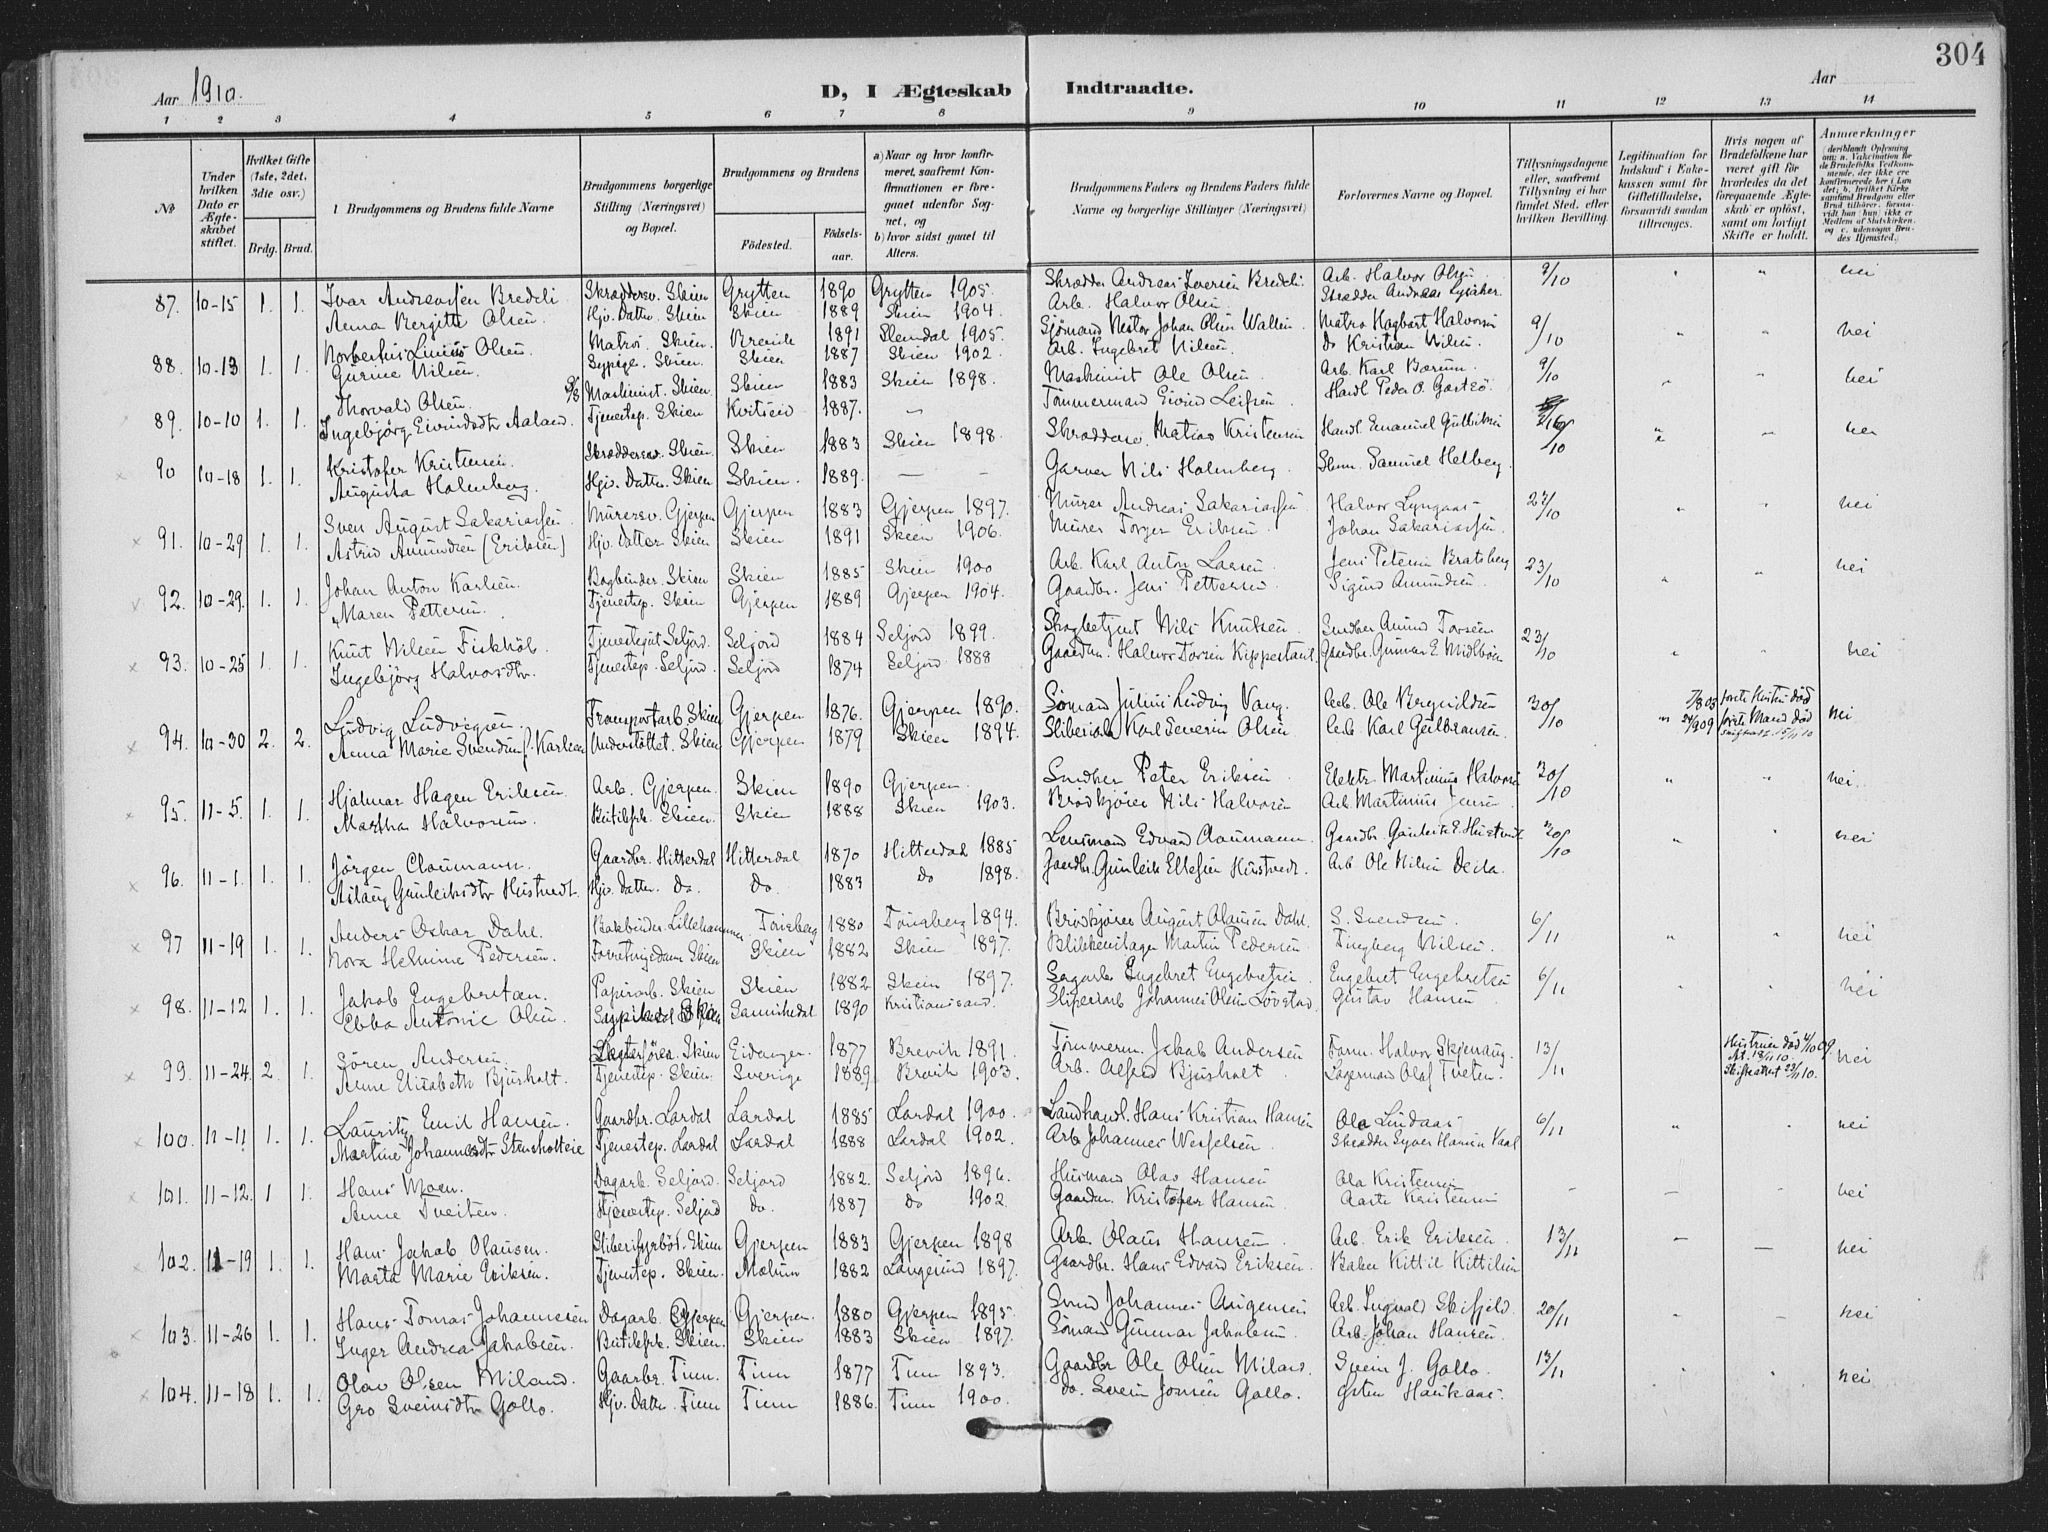 304
Aar 1910.
D, I Ægteskab Indtraadte.
Aar
1 2 3 4 5 6 7 8 9 10 11 12 13 14
№
Under hvilken Dato er Ægteskabet stiftet.
Hvilket Gifte (1ste, 2det, 3die osv.)
Brdg. Brud.
Brudgommens og Brudens fulde Navne
Brudgommens borgerlige Stilling (Næringsvei) og Bopæl.
Brudgommens og Brudens
Fødested.
Fødselsaar.
a) Naar og hvor konfirmeret, saafremt Konfirmationen er foregaaet udenfor Sognet, og
b) hvor sidst gaaet til Alters.
Brudgommens Faders og Brudens Faders fulde Navne og borgerlige Stillinger (Næringsvei)
Forlovernes Navne og Bopæl.
Tillysningsdagene eller, saafremt Tillysning ei har fundet Sted, efter hvilken Bevilling.
Legitimation for Indskud i Enkekassen samt for Giftetilladelse, forsaavidt saadan tiltrænges.
Hvis nogen af Brudefolkene har været gift før hvorledes da det foregaaende Ægteskab er opløst, samt om lovligt Skifte er holdt.
Anmærkninger
87. 10-15 1. 1. Ivar Andreassen Bredeli Skræddersv. Skien Grytten 1890 Grytten 1905. Skrædder Andreas Iversen Bredeli Arb. Halvor Olsen 9/10 " " nei
Anna Bergitte Olsen. Hjv. Datter Skien Skien 1889 Skien 1904. Arb. Halvor Olsen. Skrædder Andreas Lysaker
88. 10-13 1. 1. Norbertus Linius Olsen. Matros. Skien. Brevik 1891 Slemdal 1905. Sjømand Nestor Johan Olsen Wallin. Matros Hagbart Halvorsen 9/10 " " nei
Gurine Nilsen. Sypige. Skien. Skien 1887 Skien 1902. Arb. Ingebret Nilsen. do Kristian Nilsen.
89. 10-10 1. 1. Thorvald Olsen Maskinist. Skien. Skien 1883 Skien 1898. Maskinist Ole Olsen. Arb. Karl Bærum. 9/10 " " nei
Ingebjörg Eivindsdtr Aaland. Tjenestep. Skien Kvitseid 1887. " Tømmermand Eivind Leifsen. Handl Peder O. Gastsø.
90 10-18 1. 1. Kristofer Kristensen. Skræddersv. Skien. Skien 1883 Skien 1898. Skræddersv. Matias Kristensen Handl. Emanuel Gulliksen /10 " " nei
Augusta Holmberg. Hjv. Datter. Skien Skien. 1889. — — Garver Nils Holmberg. Samuel Helberg.
91. 10-29 1. 1. Sven August Sakariassen. Murersv. Gjerpen Gjerpen 1883 Gjerpen 1897. Murer Andreas Sakariassen Halvor Lyngaas 23/10 " " nei
Astrid Amundsen (Eriksen) Hjv. Datter Skien Skien 1891 Skien 1906. Murer Torger Eriksen Johan Sakariassen.
92. 10-29. 1. 1. Johan Anton Karlsen. Bogbinder. Skien Skien 1885 Skien 1900 Arb. Karl Anton Larsen Jens Petersen Bratsberg 23/10 " " nei
Maren Pettersen. Tjenestep. Skien Gjerpen 1889 Gjerpen 1904. Gaardbr. Jens Pettersen Sigurd Amundsen.
93. 10-25 1. 1. Knut Nilsen Fiskhöl. Tjenestegut Seljord. Seljord 1884 Seljord 1899. Skogbetjent Nils Knutsen Smedber Amund Torsen 23/10 " " nei
Ingebjörg Halvorsdtr. Tjenestep. Seljord. Seljord 1874 Seljord 1888 Gaardm. Halvor Torsen Kippestaul. Gaardbr. Gunnar E. Midtbøen
94. 10-30 2. 2. Ludvig Ludvigsen. Transportarb. Skien Gjerpen 1876. Gjerpen 1890. Sømand Julius Ludvig Vang. Arb. Ole Bergvildsen 30/10 7/8 03 förste Hustru död nei
Anna Marie Svendsen f. Karlsen Understøttet. Skien Gjerpen 1879 Skien 1894. Sliberiarb. Karl Severin Olsen Arb. Karl Gulbransen. förste Mand död skifteatt. 15/11 10
95. 11-5. 1. 1. Hjalmar Hagen Eriksen. Arb. Gjerpen. Skien 1890 Gjerpen. Smedber Peter Eriksen. Elektr. Martinius Halvorsen 30/10 " " nei.
Martha Halvorsen. Butikfrk. Skien. Skien 1888 Skien 1903. Brødkjører Nils Halvorsen Arb. Martinius Jensen
96. 11-1. 1. 1. Jörgen Cloumann. Gaardbr. Hitterdal Hitterdal 1870 Hitterdal 1885 Lensmand Edvard Cloumann. Gaardbr. Gunleik E. Hustvedt 30/10 " " nei
Aslaug Gunleiksdtr Hustvedt. Hjv. Datter. do. do. 1883 do 1898. Gaardbr. Gunleik Ellefsen Hustvedt. Arb Ole Nilsen Deila.
97 11-19 1. 1. Anders Oskar Dahl. Bokbinder. Lillehammer Tönsberg 1880 Tönsberg 1894. Brødkjører August Olausen Dahl. S. Svendsen. 6/11 " " nei
Nora Helmine Pedersen. Forretningsdame Skien Skien 1882 Skien 1897. Blikkenslager Martin Pedersen Nilsen.
98. 11-12 1. 1. Jakob Engebretsen. Papirarb. Skien Skien 1882 Skien 1897. Sagarb. Engebret Engebretsen Engebret Engebretsen 6/11 " " nei
Ebba Antonie Olsen. Sypike. Skien Sannikedal 1890 Kristianssand. Sliperiarb Johannes Olsen Løvstad Gustav Hansen
99. 11-24. 2. 1. Sören Andersen. Skien Eidanger. 1877 Brevik 1891. Tömmerm. Jakob Andersen Halvor Skjenaug. 13/11 Hustruen död 4/10 09. nei
Anne Elisabeth Bjusholt. Tjenestep. Skien. Sverige 1889 Brevik 1903. Arb. Alfred Bjusholt Lagermand Olaf Tveten. Skifteattest 23/11 10.
100. 11-11 1. 1. Lauritz Emil Hansen. Gaardbr. Lardal Lardal 1885 Lardal 1900. Landhandl. Hans Kristian Hansen Ole Lindaas 6/11 " " nei
Martine Johannesdtr Stensholteie Tjenestep. Lardal Lardal 1888 Lardal 1902. Arb Johannes Wesselsen Skrædder Syver Hansen Kaal
101. 11-12. 1 1. Hans Moen. Dagarb. Seljord. Seljord 1882. Seljord 1896. Husmand Olav Hansen Ola Kristensen — — " nei
Anne Tveiten. Tjenestep. Seljord do. 1887 do 1902 Gaardm. Kristofer Hansen. Aaste Kristensen
102. 11-19 1. 1. Hans Jakob Olausen. Skien Gjerpen 1883 Gjerpen 1898 Arb. Olaus Hansen Arb. Erik Eriksen. 13/11 — — nei
Marta Marie Eriksen. Tjenestep. Skien. Molum 1882 Langesund 1897. Gaardbr. Hans Edvard Eriksen. Baker Kittil Kittilsen
103. 11-26 1. 1. Hans Tomas Johannesen Dagarb. Gjerpen Gjerpen. 1880 Gjerpen 1895 Smed Johannes Augensen Arb. Ingvald Skifjeld. 20/11 " " nei
Inger Andrea Jakobsen. Butikfrk. Skien. Skien 1883 Skien 1897. Sømand Gunnar Jakobsen. Arb. Johan Hansen.
104. 11-18 1. 1. Olav Olsen Miland. Gaarbr. Tinn. Tinn 1877 Tinn 1893. Gaardbr Ole Olsen Miland. Svein J. Gollo. 13/11 " " nei
Gro Sveinsdtr Gollo. Hjv. Datter. Tinn Tinn 1886. Tinn 1900. do. Svein Jonsen Gollo. Østen Haukaas.